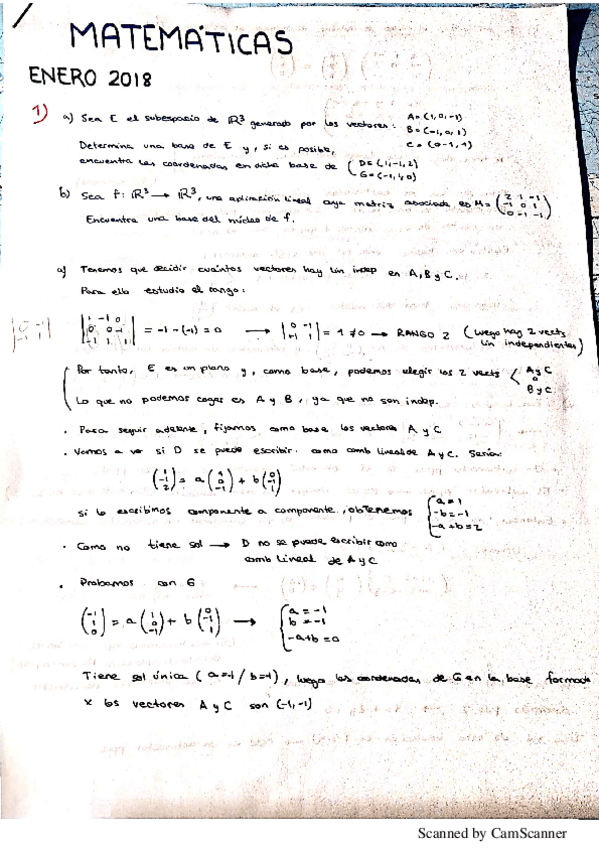 MATEMÁTICAS
ENERO 2018
1) a) Sea E el subespacio de ℝ³ generado por los vectores: A=(1,0,-1)
B=(-1,0,1)
C=(0-1,1)
Determina una base de E y, si es posible,
encuentra las coordenadas en dicha base de { D=(1,-1,2)
G=(-1,1,0)
b) Sea f: ℝ³ → ℝ³, una aplicación lineal cuya matriz asociada es M= (2 1 -1
-1 0 1
0 -1 -1)
Encuentra una base del núcleo de f.
a) Tenemos que decidir cuántos vectores hay lin indep en A, B y C.
Para ello estudio el rango:
|1 -1 0
0 0 -1
-1 1 1| = -1-(-1) = 0 → |0 -1
-1 1| = 1 ≠ 0 → RANGO 2 (luego hay 2 vects
lin independientes)
Por tanto, E es un plano y, como base, podemos elegir los 2 vects < A y C
o
B y C
Lo que no podemos coger es A y B, ya que no son indep.
· Para seguir adelante, fijamos como base los vectores A y C
· Vamos a ver si D se puede escribir como comb lineal de A y C. Sería:
(1
-1
2) = a (1
0
-1) + b (0
-1
1)
si lo escribimos componente a componente, obtenemos { a=1
-b=-1
-a+b=2
· Como no tiene sol → D no se puede escribir como
comb lineal de A y C
· Probamos con G
(-1
1
0) = a (1
0
-1) + b (0
-1
1) → { a=-1
b=-1
-a+b=0
Tiene sol única (a=-1 / b=-1), luego las coordenadas de G en la base formada
x los vectores A y C son (-1,-1)
Scanned by CamScanner